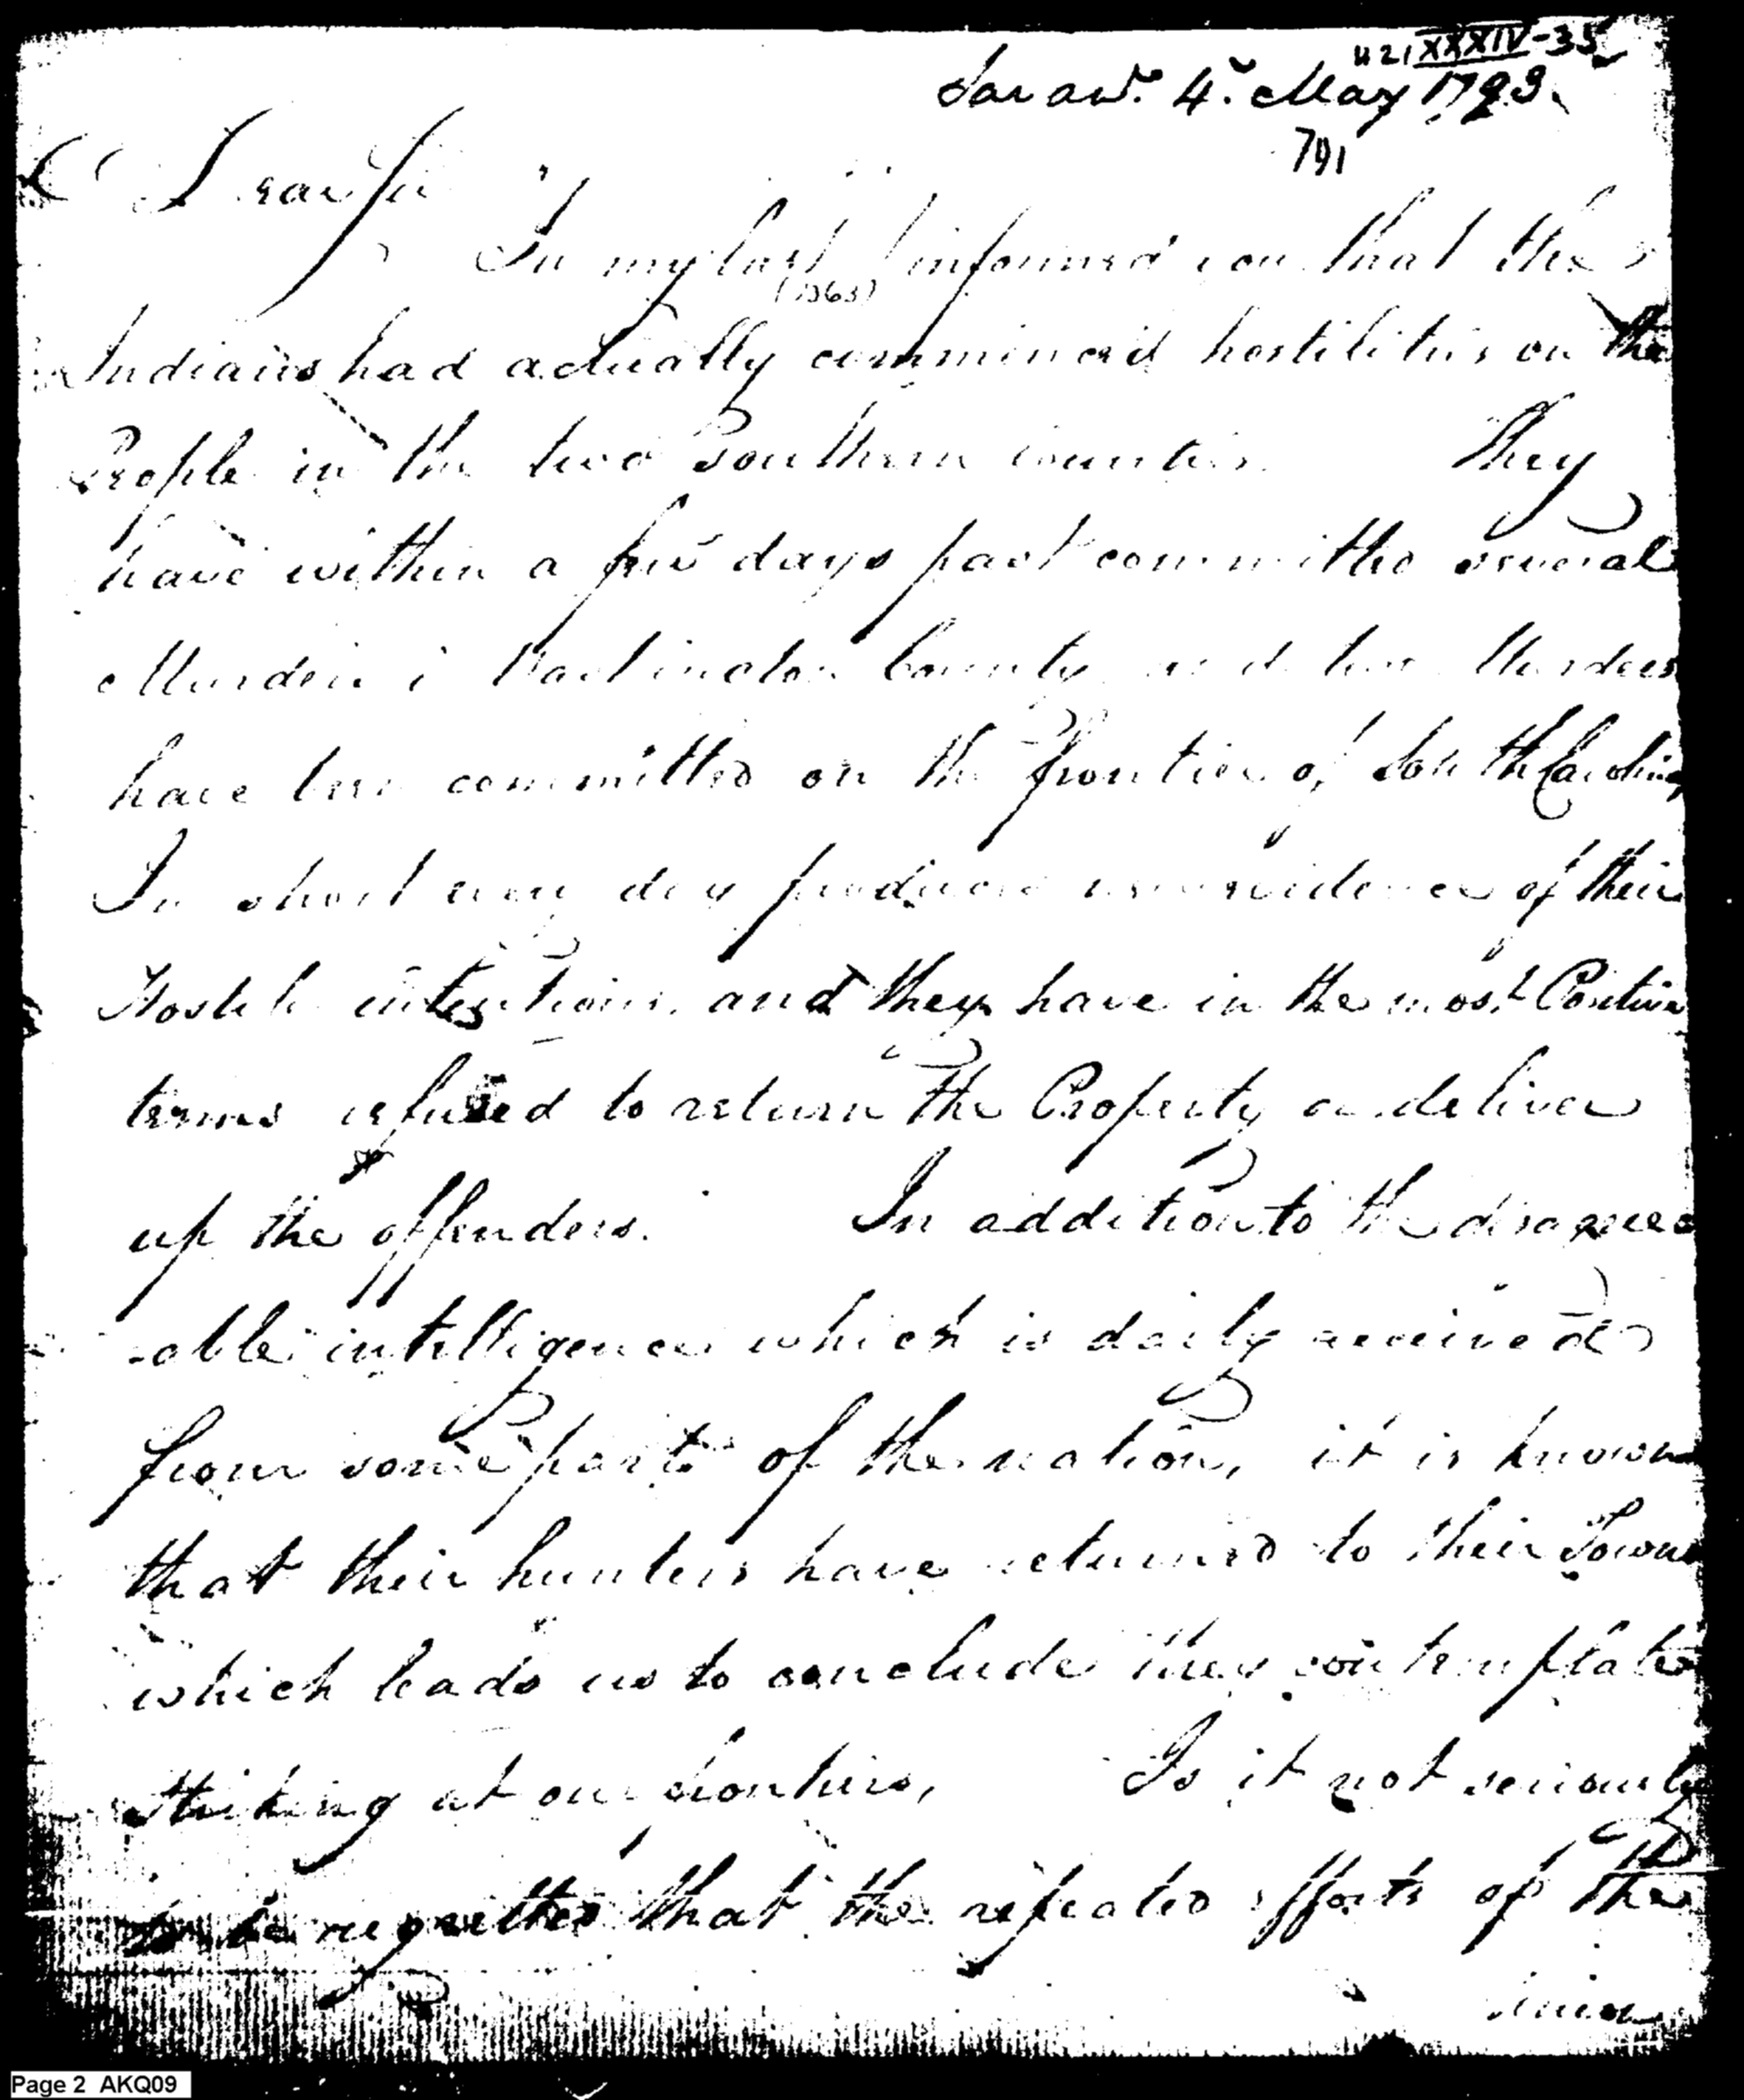 421 XXXIV-35
Savan.h 4.h May 1793.
791
Dear Sir
In my last I informed you that the
(1363)
Indians had actually commenced hostilities on the
People in the two Southern counties. They
have within a few days past committed several
Murders in County and two Murders
have been committed on the frontier of South Carolina,
In short every day produces evidence of their
Hostile intentions, and they have in the most Positive
terms refused to return the Property or deliver
up the offenders. In addition to the disagree
-able intelligence which is daily received
from some parts of the nation, it is known
that their hunters have returned to their Towns
which leads us to conclude they contemplate
Striking at our frontiers, Is it not seriously
to be regretted that the repeated efforts of the
Page 2 AKQ09